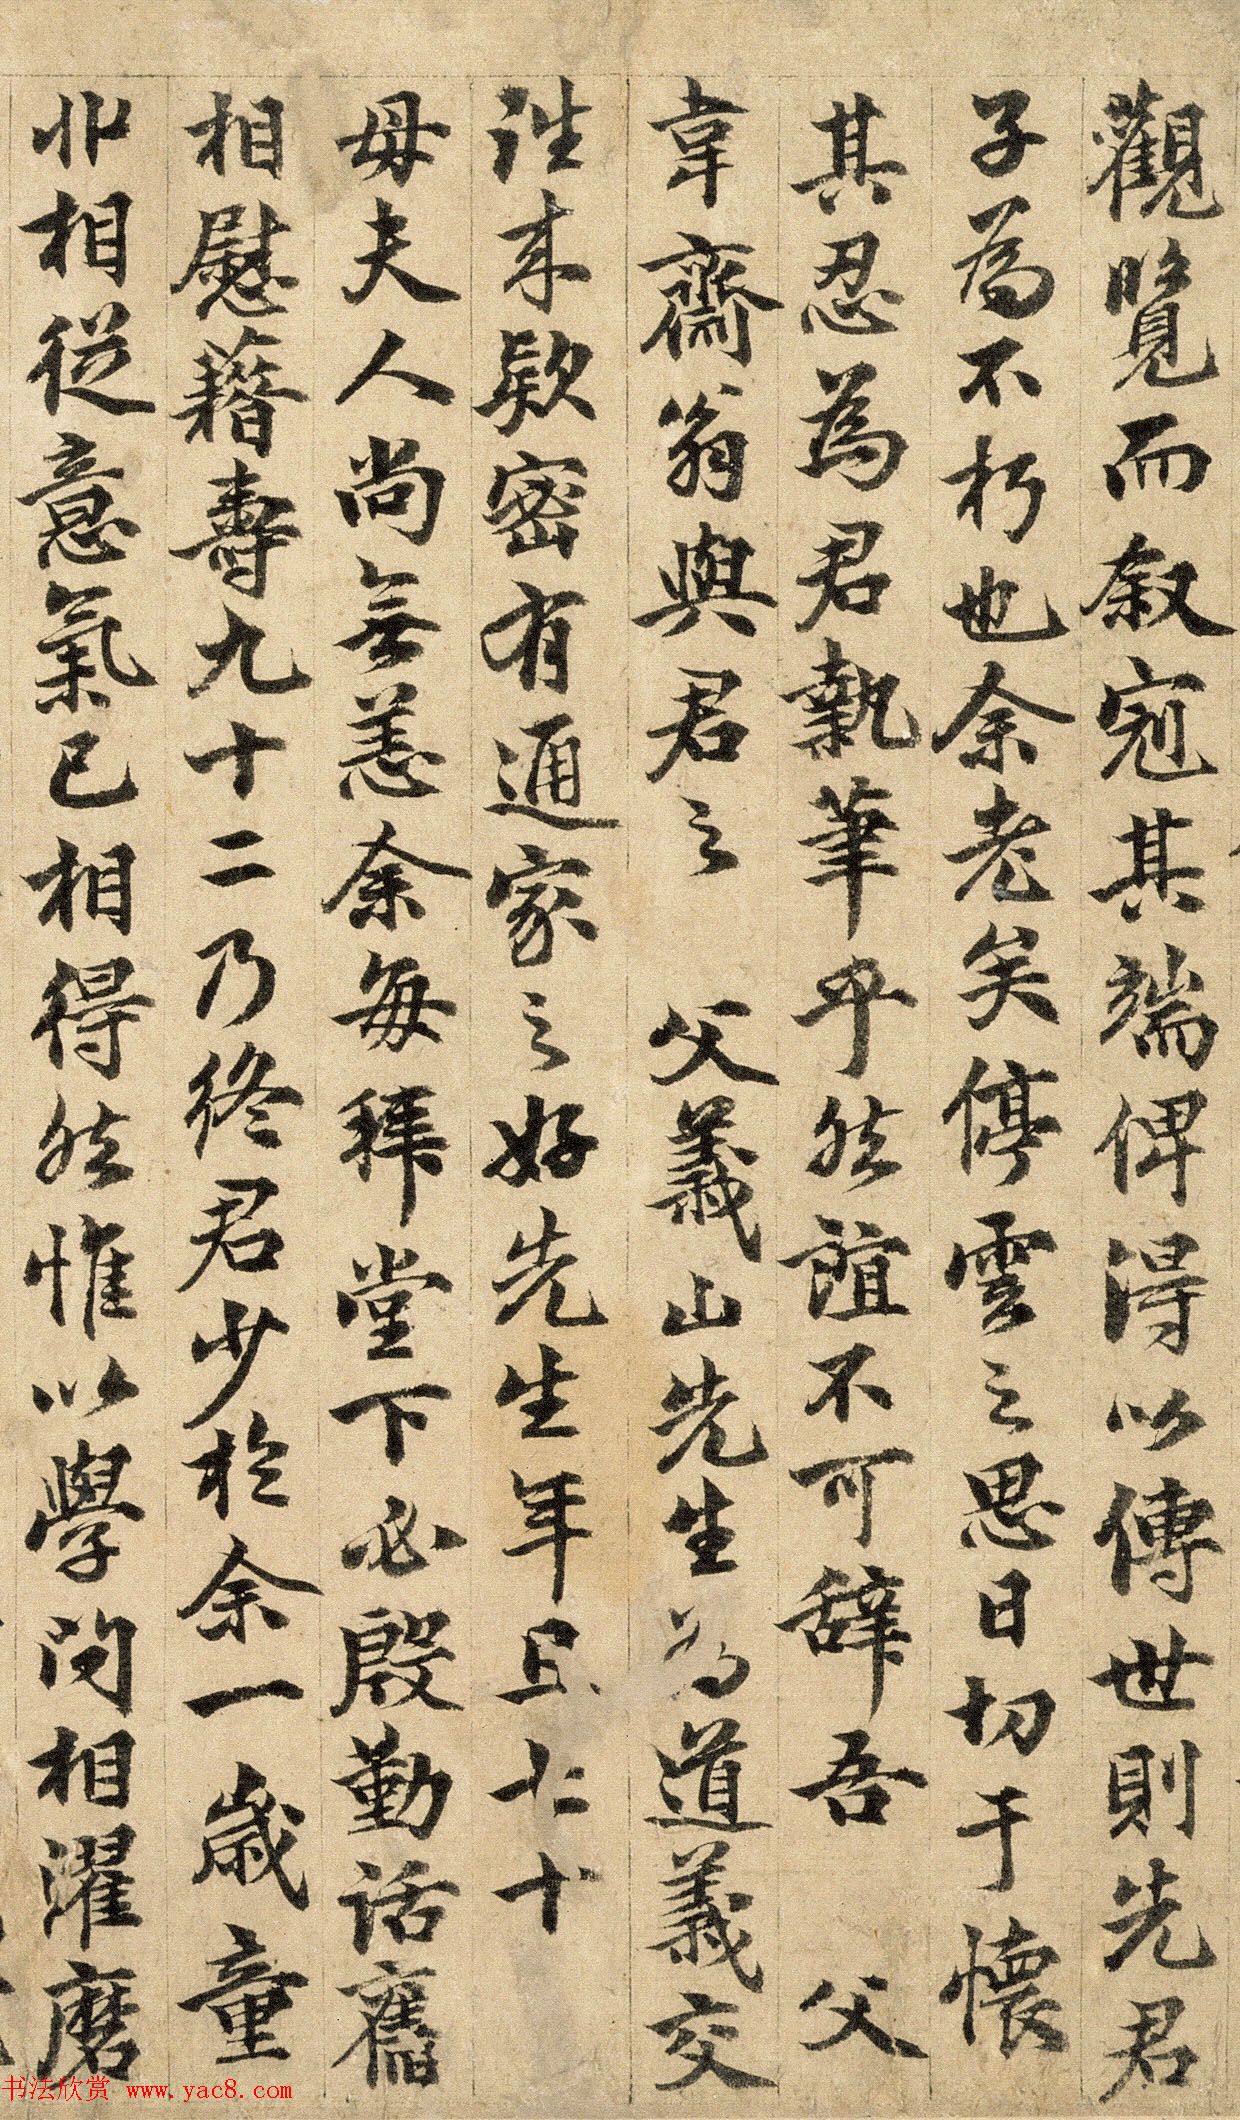 觀覽而叙冠其端俾得以傳世則先君
子為不朽也余老矣停雲之思日切于懷
其忍為君執筆乎然誼不可辭吾父
韋齋翁與君之父義山先生為道義交
往来欵密有通家之好先生年且七十
母夫人尚無恙余每拜堂下必殷勤話舊
相慰藉壽九十二乃終君少於余一歲童
丱相從意氣已相得然惟以學問相濯磨
书法欣赏 www.yac8.com